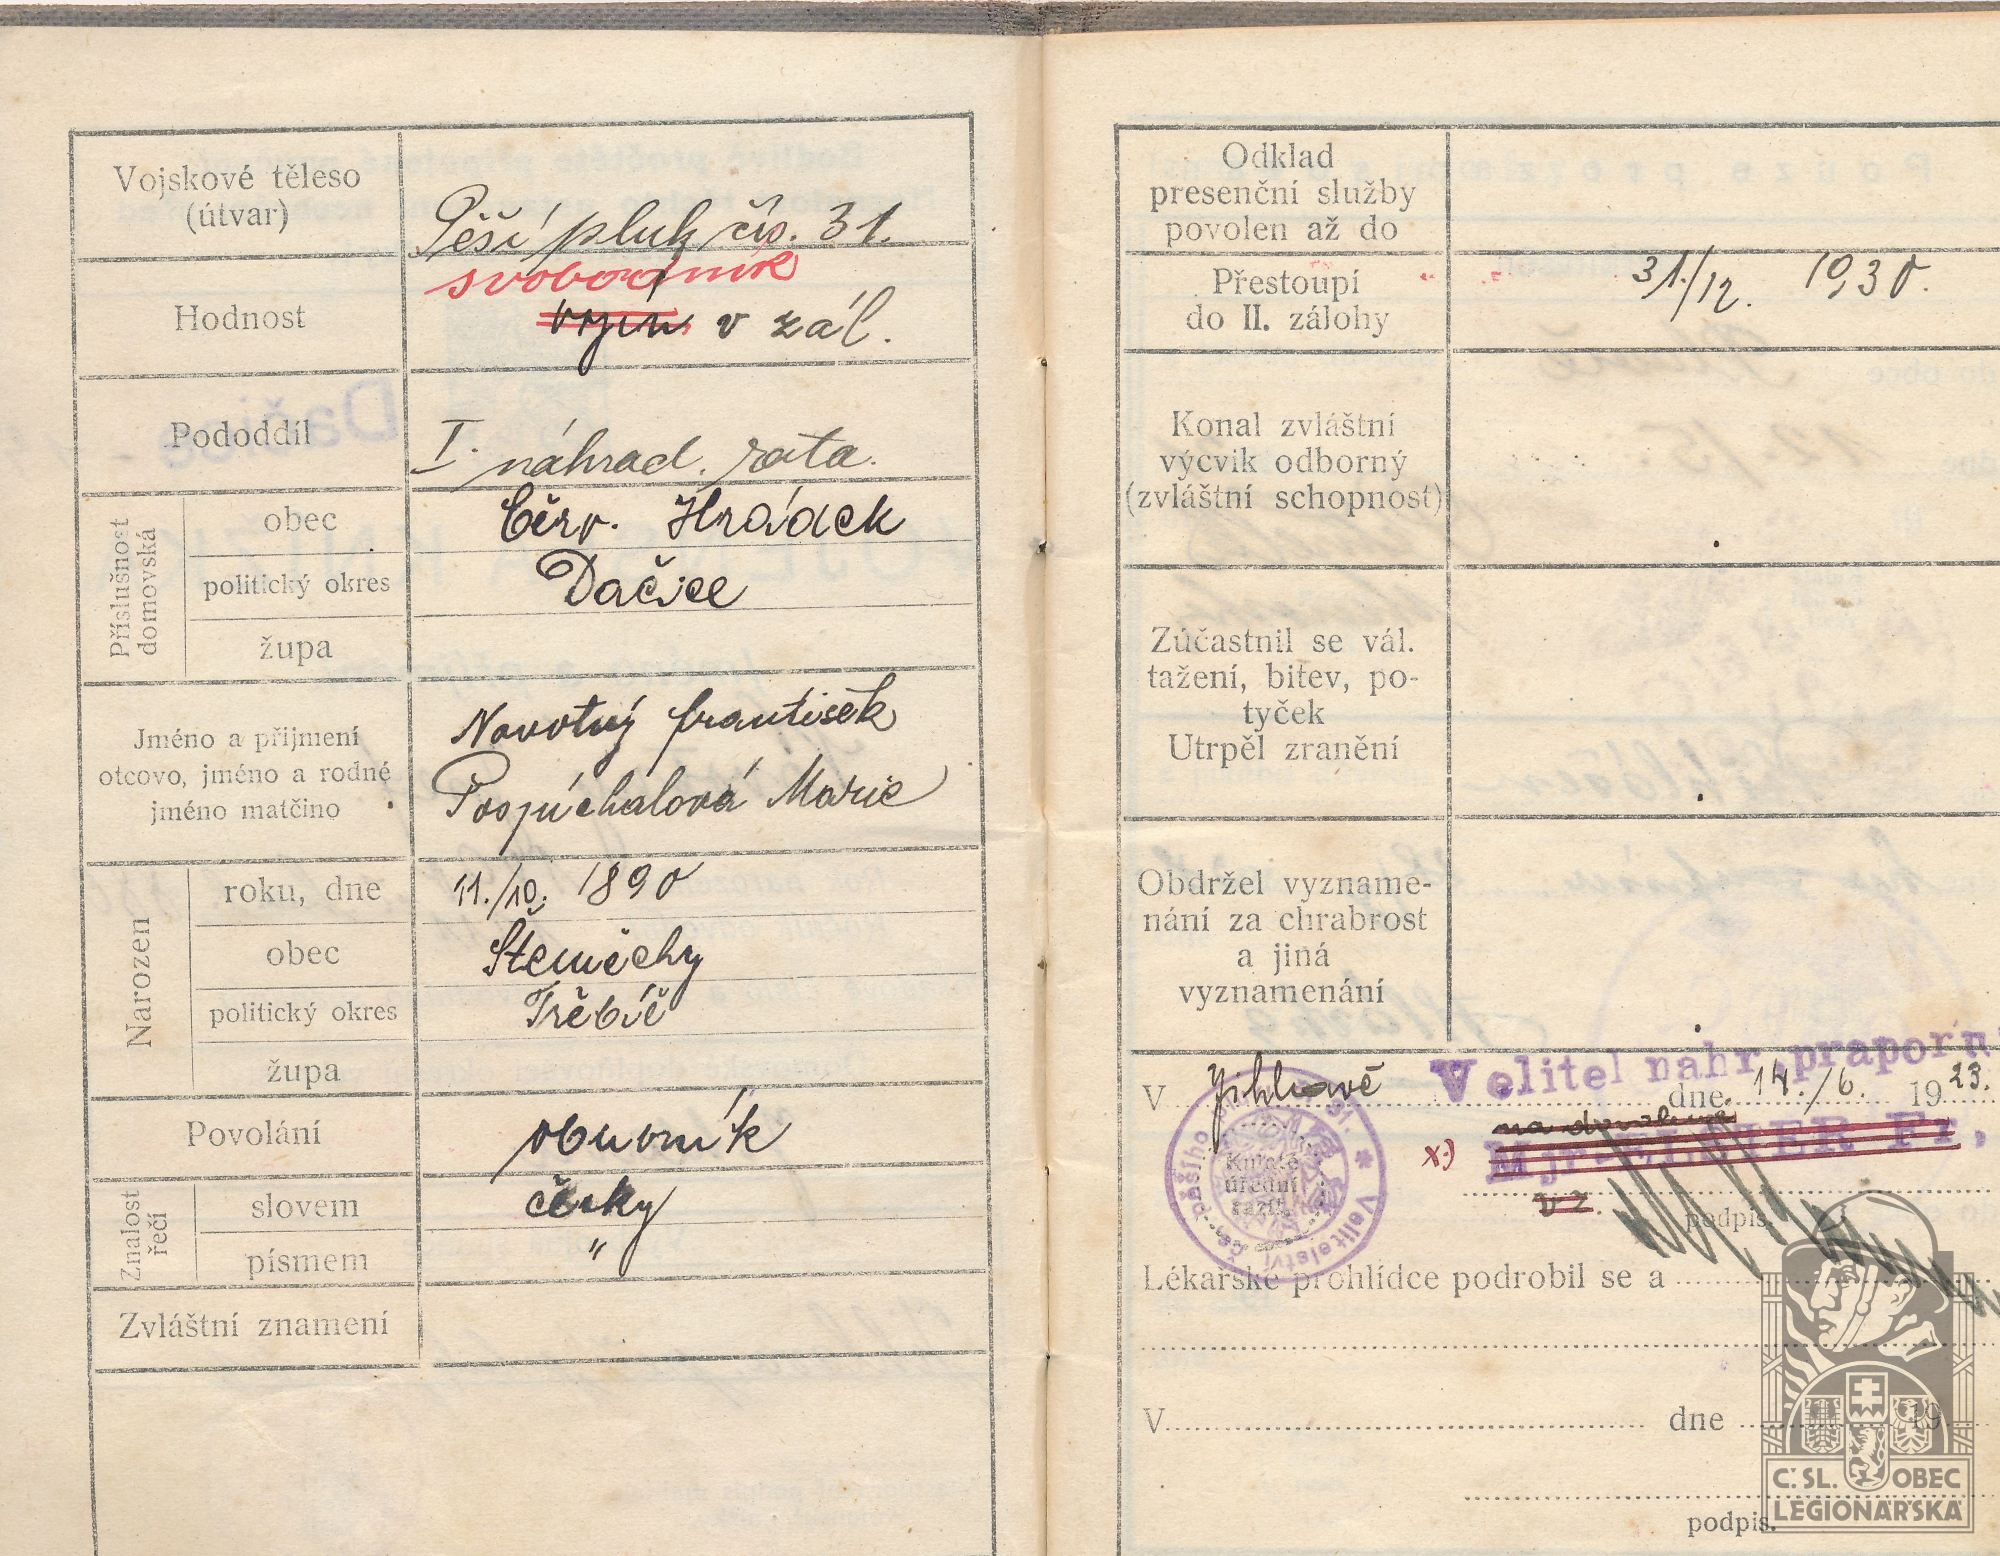 Vojskové těleso
(útvar)
Pěší pluk čís. 31.
svobodník
Hodnost
vojín v zál.
Pododdíl
I. náhrad. rota.
Příslušnost domovská
obec
Červ. Hrádek
politický okres
Dačice
župa
Jméno a přijmení
otcovo, jméno a rodné
jméno matčino
Novotný František
Pospíchalová Marie
Narozen
roku, dne
11./10. 1890
obec
Štěměchy
politický okres
Třebíč
župa
Povolání
obuvník
Znalost řečí
slovem
česky
písmem
"
Zvláštní znamení
Odklad
presenční služby
povolen až do
Přestoupí
do II. zálohy
31./12. 1930.
Konal zvláštní
výcvik odborný
(zvláštní schopnost)
Zúčastnil se vál.
tažení, bitev, po-
tyček
Utrpěl zranění
Obdržel vyzname-
nání za chrabrost
a jiná
vyznamenání
Velitel nahr. praporu
V Jihlavě dne 14./6. 1923.
na dovolené
x) Mjr. Fr,
v z.
Kulaté
úřední
razít.
pěšího Velitelství
podpis.
Lékařské prohlídce podrobil se a
V dne 19
podpis.
Č.SL. OBEC
LEGIONÁŘSKÁ